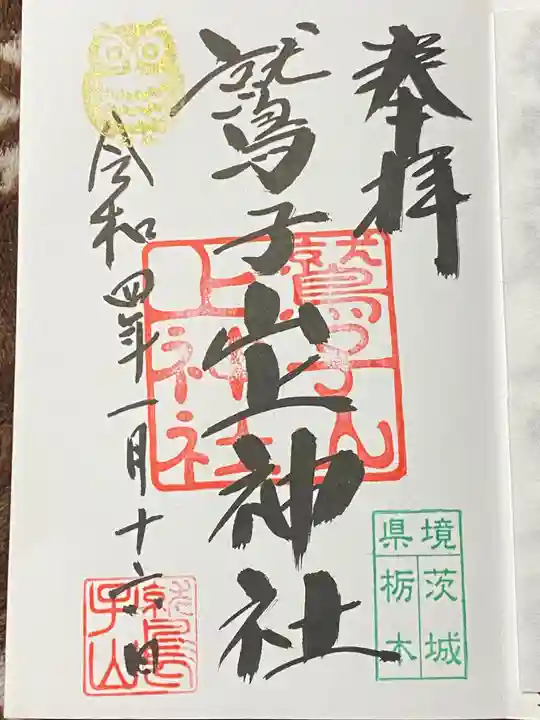 奉拝
鷲子山上神社
令和四年一月十六日
鷲子山
上神社
境 茨城
県 栃木
鷲
子山